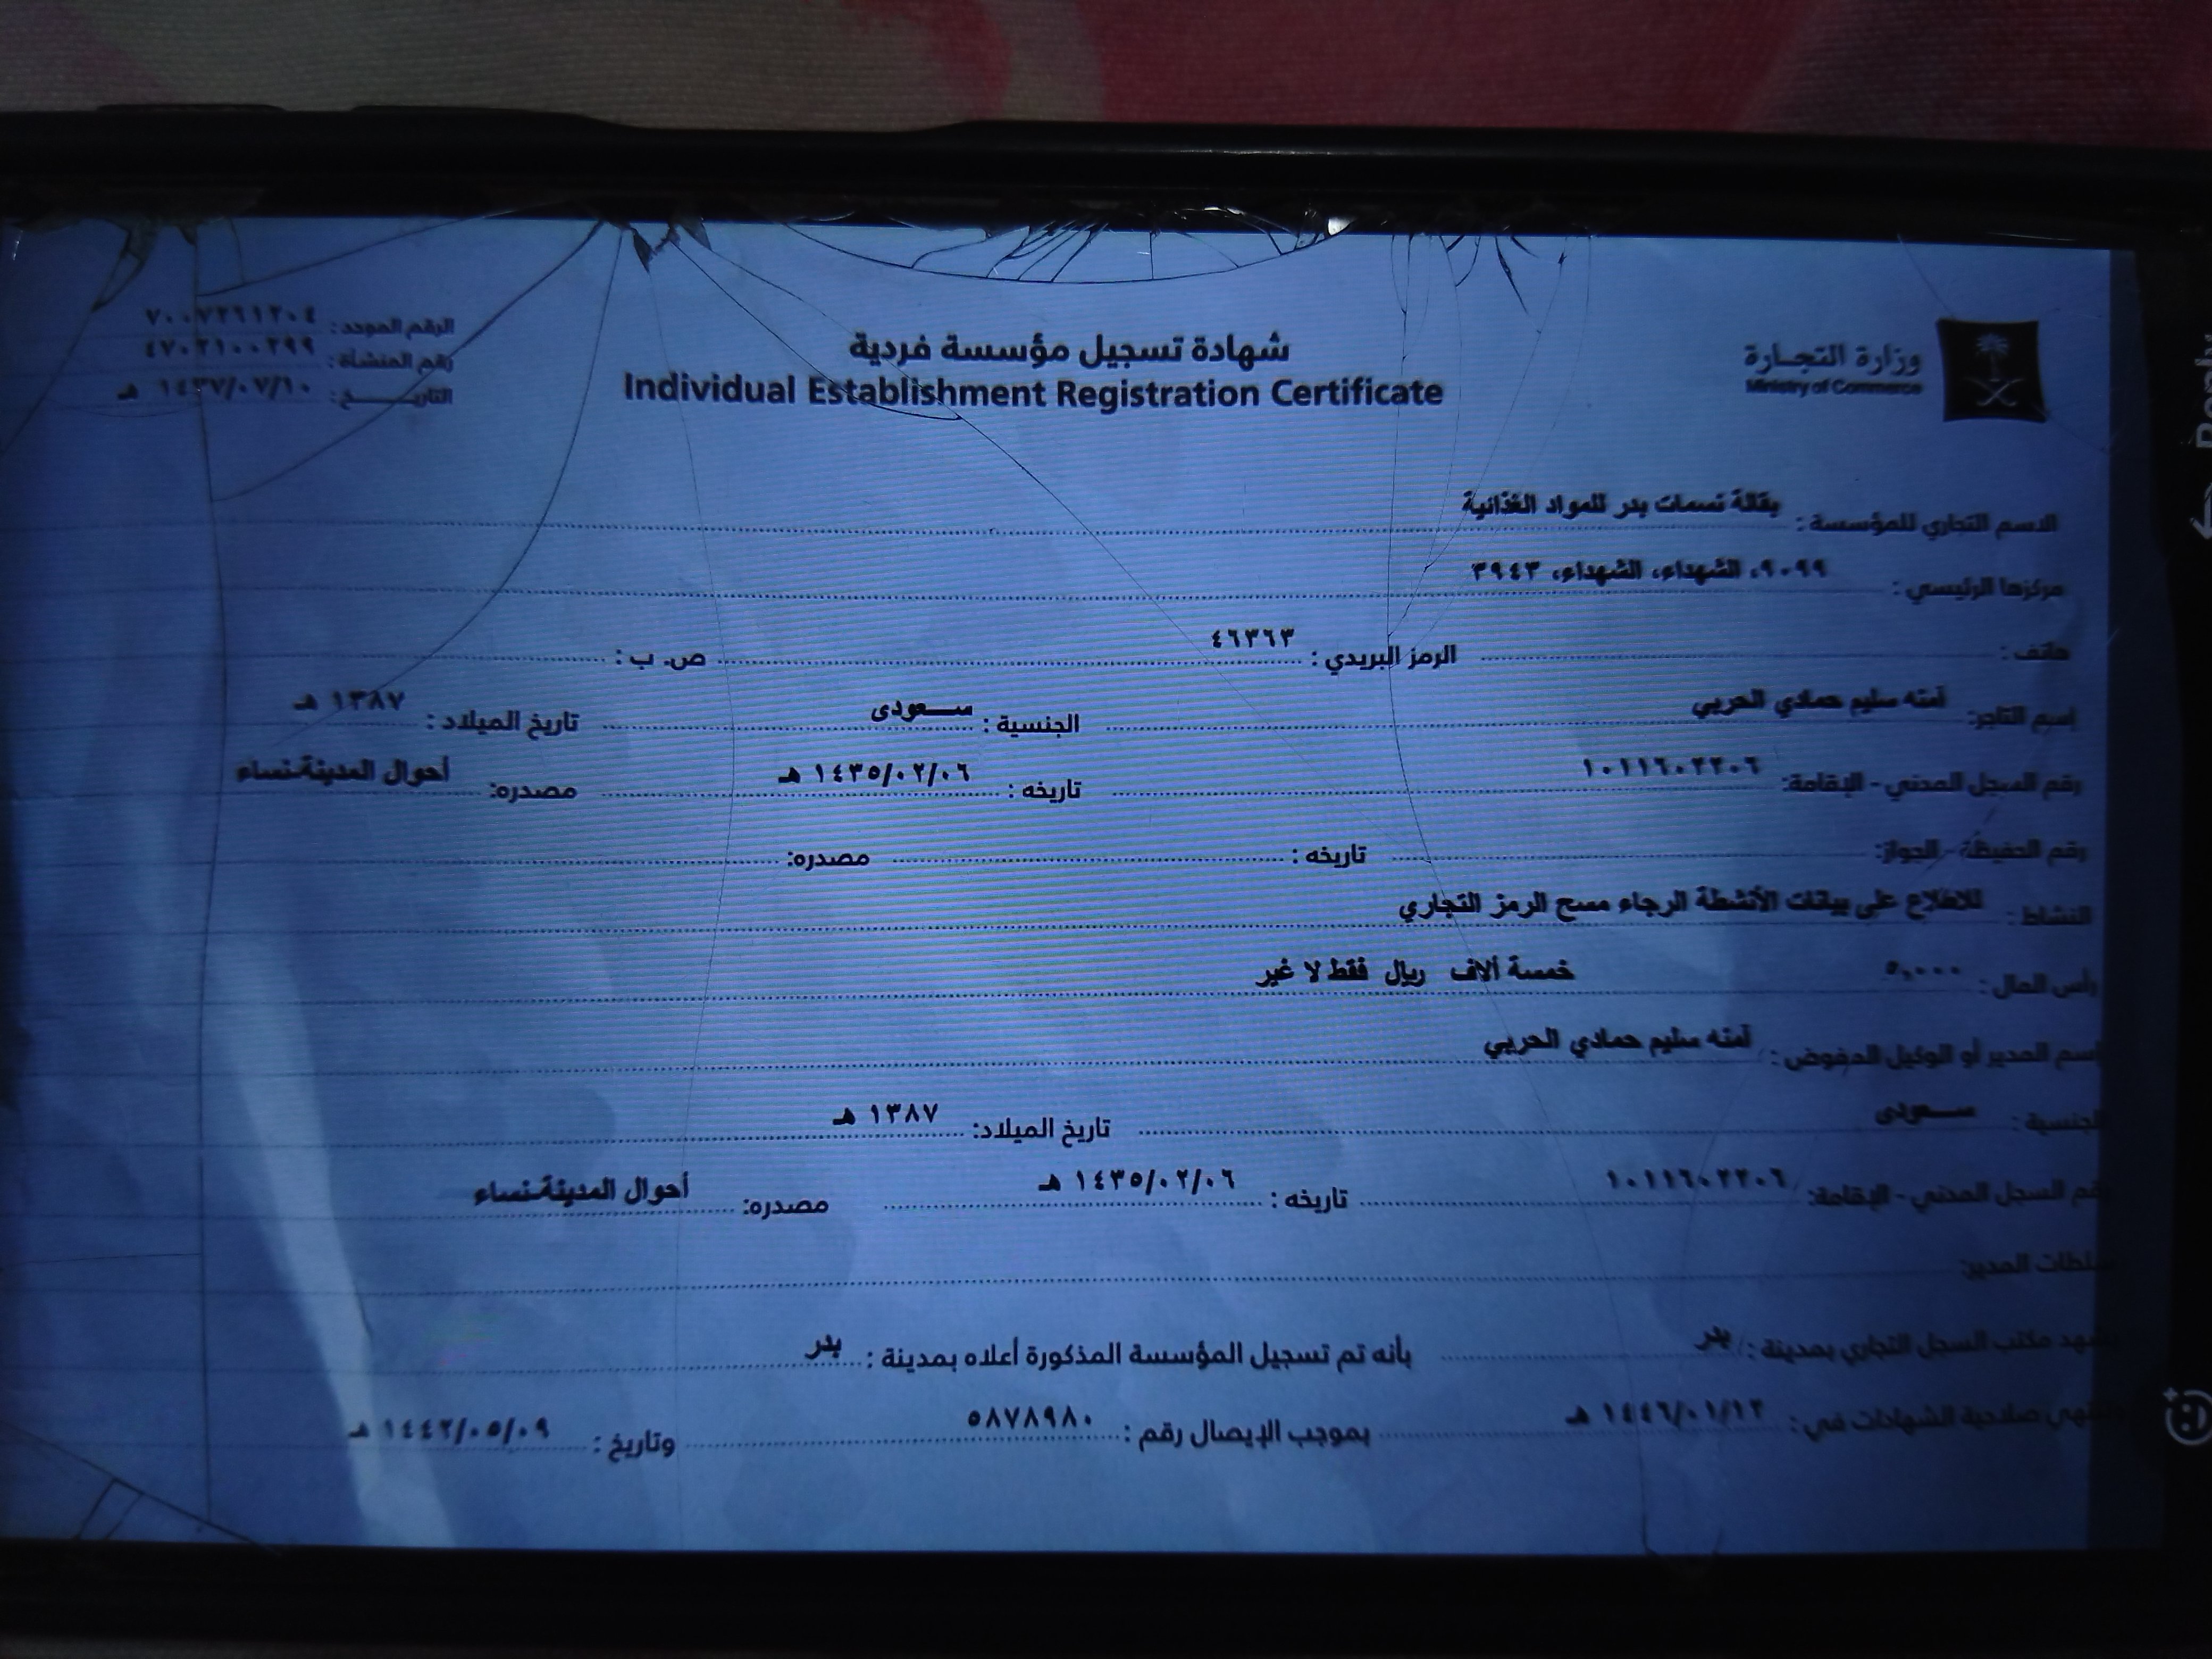 وزارة التجارة
Ministry of Commerce
شهادة تسجيل مؤسسة فردية
Individual Establishment Registration Certificate
الرقم الموحد: ٧٠٠٧٢٦١٢٠٤
رقم المنشأة: ٤٧٠٢١٠٠٢٩٩
التاريـــــخ: ١٤٣٧/٠٧/١٠ هـ
الاسم التجاري للمؤسسة : بقالة نسمات بدر للمواد الغذائية
مركزها الرئيسي : ٩٠٩٩، الشهداء، الشهداء، ٣٩٤٣
هاتف : الرمز البريدي : ٤٦٣٦٣ ص. ب :
اسم التاجر: آمنه سليم حمادي الحربي الجنسية : ســـعودى تاريخ الميلاد : ١٣٨٧ هـ
رقم السجل المدني - الإقامة: ١٠١١٦٠٢٢٠٦ تاريخه : ١٤٣٥/٠٢/٠٦ هـ مصدره: أحوال المدينة-نساء
رقم الحفيظة - الجواز: تاريخه : مصدره:
النشاط : للاطلاع على بيانات الأنشطة الرجاء مسح الرمز التجاري
رأس المال : ٥,٠٠٠ خمسة آلاف ريال فقط لا غير
اسم المدير أو الوكيل المفوض : آمنه سليم حمادي الحربي
الجنسية : ســـعودى تاريخ الميلاد: ١٣٨٧ هـ
رقم السجل المدني - الإقامة: ١٠١١٦٠٢٢٠٦ تاريخه : ١٤٣٥/٠٢/٠٦ هـ مصدره: أحوال المدينة-نساء
سلطات المدير:
يشهد مكتب السجل التجاري بمدينة : بدر بأنه تم تسجيل المؤسسة المذكورة أعلاه بمدينة : بدر
وتنتهي صلاحية الشهادات في : ١٤٤٦/٠١/١٢ هـ بموجب الإيصال رقم : ٥٨٧٨٩٨٠ وتاريخ : ١٤٤٢/٠٥/٠٩ هـ